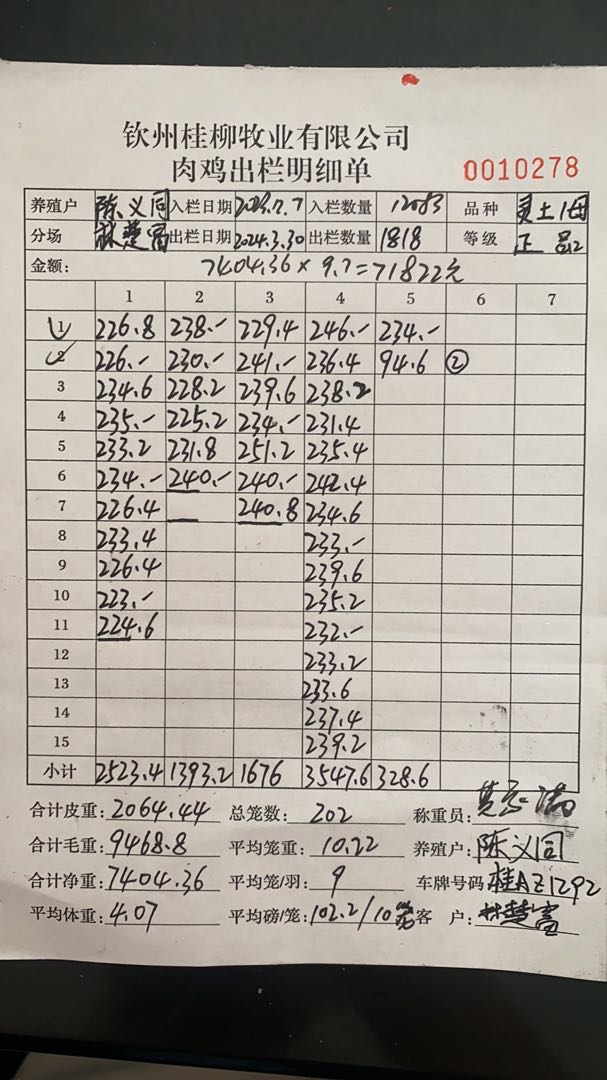 钦州桂柳牧业有限公司
肉鸡出栏明细单 0010278
养殖户 陈义同 入栏日期 2023.7.7 入栏数量 12083 品种 灵土1母
分场 林楚富 出栏日期 2024.3.30 出栏数量 1818 等级 正品
金额: 7404.36 × 9.7 = 71822元
1 2 3 4 5 6 7
1 226.8 238.- 229.4 246.- 234.-
2 226.- 230.- 241.- 236.4 94.6 ②
3 234.6 228.2 239.6 238.2
4 235.- 225.2 234.- 231.4
5 233.2 231.8 251.2 235.4
6 234.- 240.- 240.- 242.4
7 226.4 240.8 234.6
8 233.4 233.-
9 226.4 239.6
10 223.- 235.2
11 224.6 232.-
12 233.2
13 233.6
14 237.4
15 239.2
小计 2523.4 1393.2 1676 3547.6 328.6
合计皮重: 2064.44 总笼数: 202 称重员:
合计毛重: 9468.8 平均笼重: 10.22 养殖户: 陈义同
合计净重: 7404.36 平均笼/羽: 9 车牌号码: 桂AZ1292
平均体重: 4.07 平均磅/笼: 102.2/10笼 客 户: 林楚富